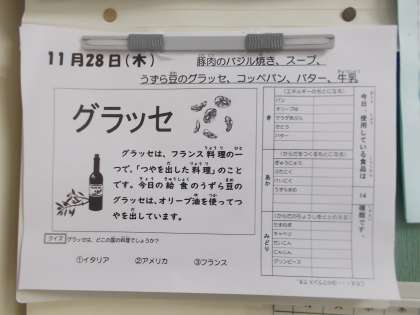 11月28日(木) 豚肉のバジル焼き、スープ、
うずら豆のグラッセ、コッペパン、バター、牛乳
グラッセ
グラッセは、フランス料理の一
つで、「つやを出した料理」のこと
です。今日の給食のうずら豆の
グラッセは、オリーブ油を使ってつ
やを出しています。
クイズ グラッセは、どこの国の料理でしょうか?
①イタリア ②アメリカ ③フランス
今日、使用している食品は
14
種類です。
き
(エネルギーのもとになる)
パン
オリーブ油
さとう
バター
あか
(からだをつくるもとになる)
ぎゅうにゅう
ぶたにく
うずらまめ
みどり
(からだのちょうしをととのえる)
たまねぎ
キャベツ
にんじん
にんにく
グリンピース